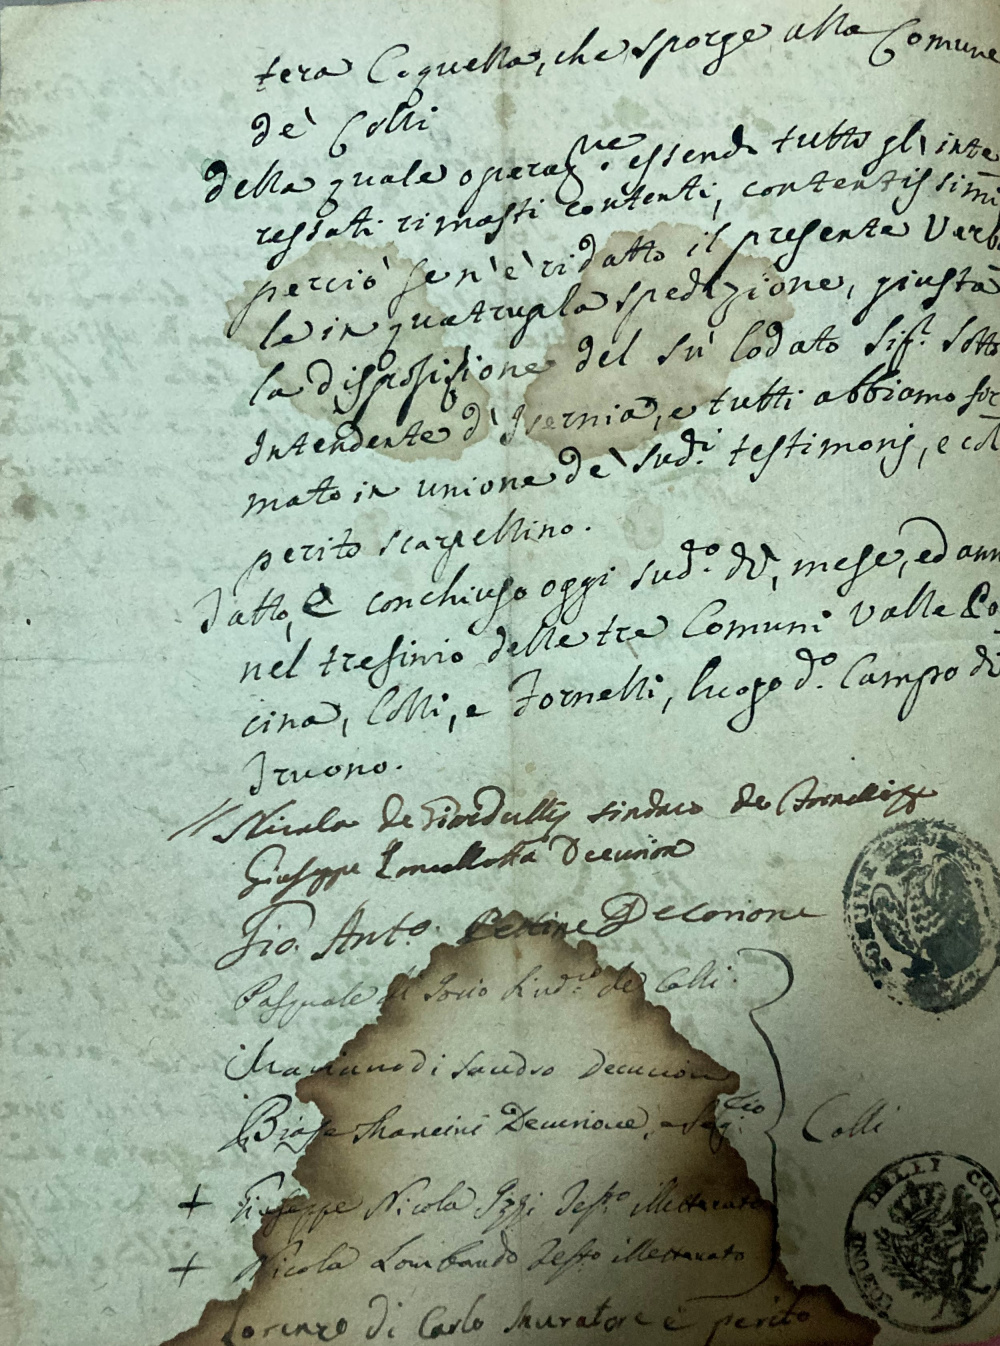 tera Cequella, che sporge alla Comune
de' Colli
della quale operaz.ne essendo tutto gl'inte
ressati rimasti contenti, contentissimi
perciò se n'è ridatto il presente Verba
le in quatrupla spedizione, giusta
la disposizione del su' lodato Sig.r Sotto
Intendente d'Isernia, e tutti abbiamo fir
mato in unione de' sud.i testimonj, e col
perito scarpellino.
Fatto, e conchiuso oggi sud.o dì, mese, ed ann
nel trefinio delle tre Comuni Valle Po
cina, Colli, e Fornelli, luogo d.o Campo di
Truono.
Nicola de sindaco de Fornelli
Giuseppe Lancellotta Decurione
Gio. Ant.o Decorione
Pasquale di Iorio Sind.co de Colli.
Mariano di Sandro Decurion
Biase Mancini Decurione, e Seg.rio
Colli
+ Giuseppe Nicola Izzi Test.o illetterato
+ Nicola Lombardo Testo illetterato
Lorenzo di Carlo Muratore è perito
COMUNE
COMUNE DELLI COLLI